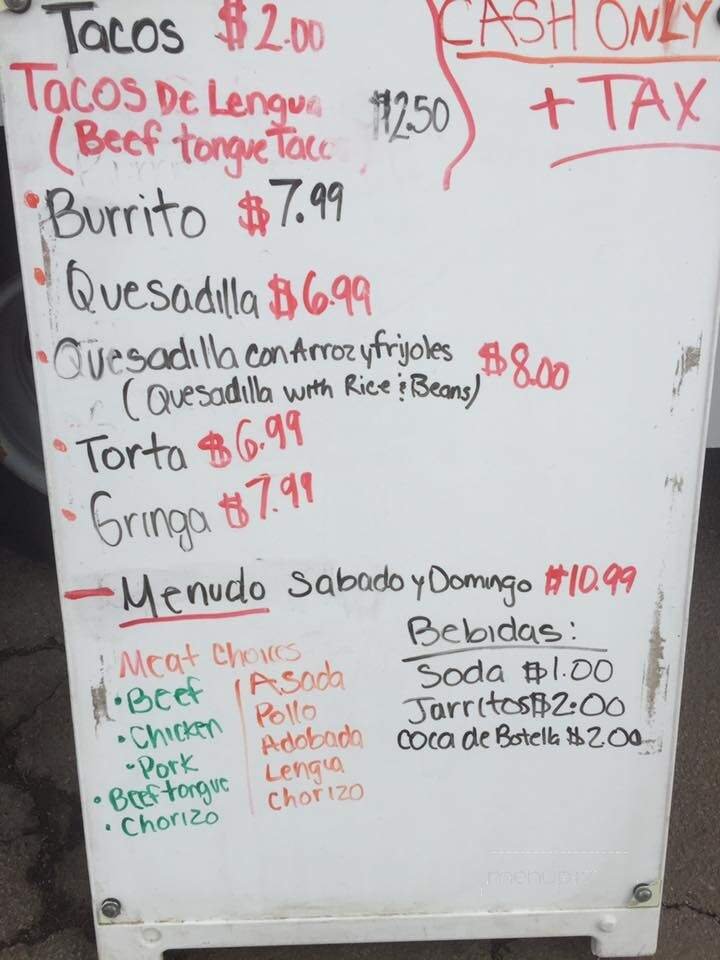 Tacos $2.00
CASH ONLY
+ TAX
Tacos De Lengua $2.50
(Beef tongue Taco
• Burrito $7.99
• Quesadilla $6.99
• Quesadilla con Arroz y frijoles $8.00
(Quesadilla with Rice & Beans)
• Torta $6.99
• Gringa $7.99
— Menudo Sabado y Domingo $10.99
Bebidas:
Soda $1.00
Jarritos $2.00
Coca de Botella $2.00
Meat Choices
• Beef | Asada
• Chicken | Pollo
• Pork | Adobada
• Beef tongue | Lengua
• Chorizo | Chorizo
menupix